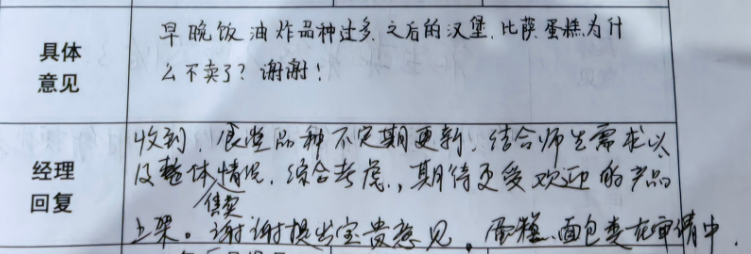 具体
意见
早晚饭油炸品种过多,之后的汉堡、比萨蛋糕为什
么不卖了?谢谢!
经理
回复
收到,食堂品种不定期更新,结合师生需求以
及整体情况,综合考虑,期待更受欢迎的产品
售卖
上架。谢谢提出宝贵意见。蛋糕、面包类在审请中.